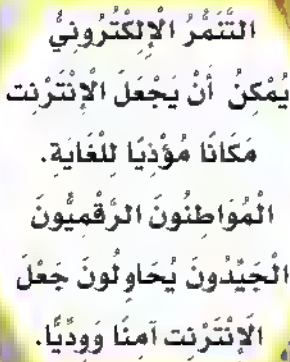 التَّنَمُّرُ الْإِلِكْتُرُونِيُّ
يُمْكِنُ أَنْ يَجْعَلَ الْإِنْتَرْنِت
مَكَانًا مُؤْذِيًا لِلْغَايَةِ.
الْمُوَاطِنُونَ الرَّقْمِيُّونَ
الْجَيِّدُونَ يُحَاوِلُونَ جَعْلَ
الْإِنْتَرْنِت آمنًا وَوِدِّيًّا.